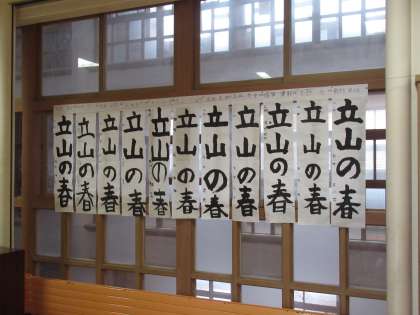 立山の春
立山の春
立山の春
立山の春
立山の春
立山の春
立山の春
立山の春
立山の春
立山の春
立山の春